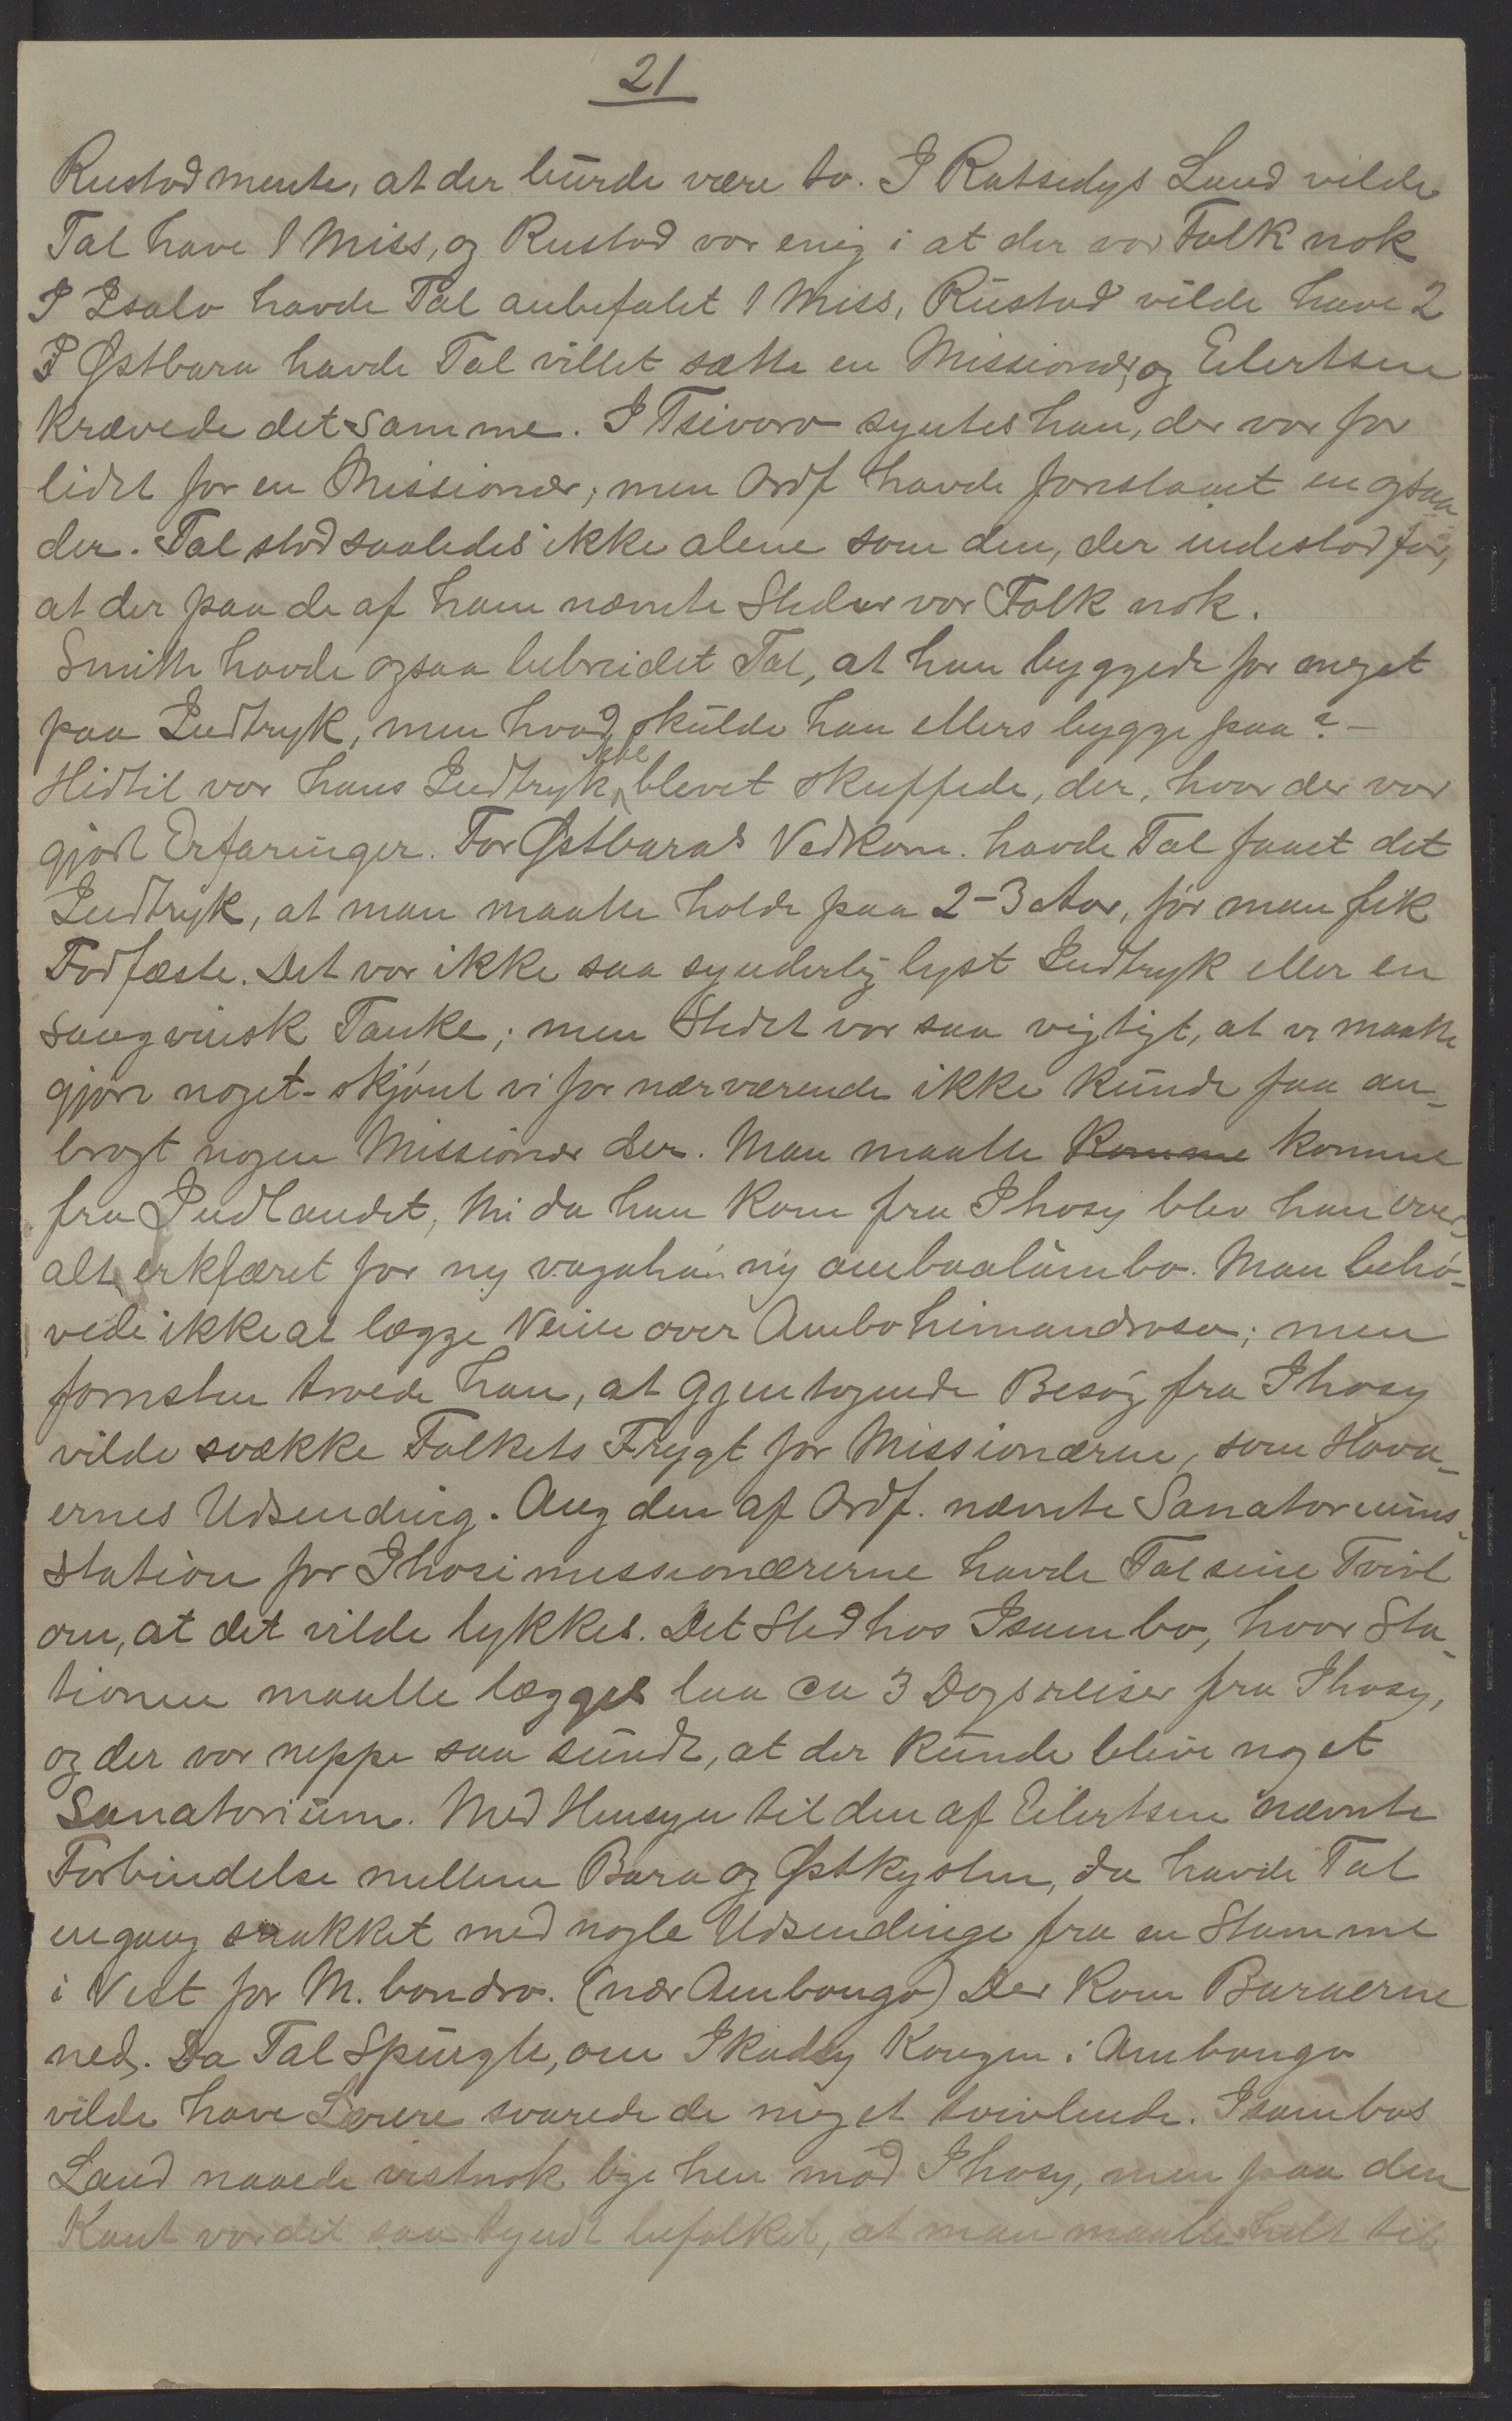 21
Rustad mente, at der burde være to. I Ratsidys Land vilde
Tal have 1 Miss, og Rustad var enig i at der var Folk nok
I Isalo havde Tal anbefalet 1 Miss, Rustad vilde have 2
I Østbara havde Tal villet sætte en Missionær, og Eilertsen
krævede det samme. I Tsivoro syntes han, der var for
lidet for en Missionær; men Ordf havde foreslaaet en ogsaa
der. Tal stod saaledes ikke alene som den, der indestod for,
at der paa de af ham nævnte Steder var Folk nok.
Smith havde ogsaa bebreidet Tal, at han byggede for meget
paa Indtryk, men hvad skulde han ellers bygge paa? -
Hidtil var hans Indtryk ikke blevet skuffede, der, hvor der var
gjort Erfaringer. For Østbaras Vedkom. havde Tal faaet det
Indtryk, at man maatte holde paa 2-3 Aar, før man fik
Fodfæste. Det var ikke saa synderlig lyst Indtryk eller en
sangvinsk Tanke; men Stedet var saa vigtigt, at vi maatte
gjøre noget - skjønt vi for nærværende ikke kunde faa an-
bragt nogen Missionær der. Man maatte komme komme
fra Indlandet, thi da han kom fra Ihosy blev han over-
alt erklæret for ny vazaha ny ambaalambo. Man behø-
vede ikke at lægge Veien over Ambohimandroso; men
fornsten troede han, at gjentagende Besøg fra Ihosy
vilde svække Folkets Frygt for Missionærene, som Hova-
ernes Udsending. Ang den af Ordf. nævnte Sanatoriums-
station for Ihosimissionærerne havde Tal sine Tvivl
om, at det vilde lykkes. Det Sted hos Isambo, hvor Sta-
tionen maatte lægges laa ca 3 Dagsreiser fra Ihosy,
og der var neppe saa sundt, at der kunde blive noget
Sanatorium. Med Hensyn til den af Eilertsen nævnte
Forbindelse mellem Bara og Østkysten, da havde Tal
engang snakket med nogle Udsendinge fra en Stamme
i Vest for M.bondro. (nær Ambongo) Der kom Baraerne
ned. Da Tal spurgte, om Ikudsy Kongen i Ambongo
vilde have Lærere svarede de meget tvivlende. Isambos
Land naaede vistnok lige hen mod Ihosy, men paa den
Kant var det saa tyndt befolket, at man maatte helt til